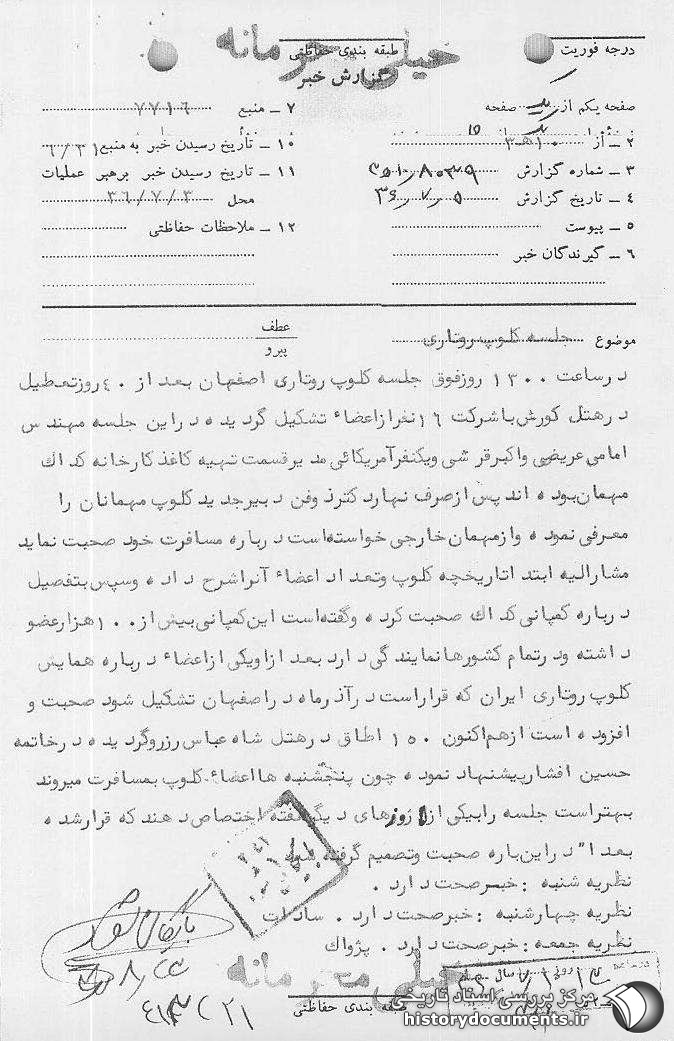 درجه فوریت
طبقه بندی حفاظتی
خیلی محرمانه
گزارش خبر
صفحه یکم از یک صفحه
۲ – از ۱۰ هـ ۳
۳ – شماره گزارش
۴ – تاریخ گزارش ۳۶/۷/۵
۵ – پیوست
۶ – گیرندگان خبر
۷ – منبع ۷۷۱۶
۱۰ – تاریخ رسیدن خبر به منبع ۶/۳۱
۱۱ – تاریخ رسیدن خبر برهبر عملیات
محل ۳۶/۷/۳
۱۲ – ملاحظات حفاظتی
موضوع جلسه کلوپ روتاری
عطف
پیرو
درساعت ۱۳۰۰ روزفوق جلسه کلوپ روتاری اصفهان بعد از ۴۰ روزتعطیل
درهتل کورش باشرکت ۱۶ نفرازاعضاء تشکیل گردیده دراین جلسه مهندس
امامی عریضی واکبرقرشی ویکنفرآمریکائی مدیرقسمت تهیه کاغذ کارخانه کداك
مهمان بوده اند پس ازصرف نهار دکترذوفن دبیرجدید کلوپ مهمانان را
معرفی نموده وازمهمان خارجی خواسته است درباره مسافرت خود صحبت نماید
مشارالیه ابتدا تاریخچه کلوپ وتعداد اعضاء آنراشرح داده وسپس بتفصیل
درباره کمپانی کداك صحبت کرده وگفته است این کمپانی بیش از ۱۰۰ هزارعضو
داشته ودرتمام کشورها نمایندگی دارد بعد ازاویکی ازاعضاء درباره همایش
کلوپ روتاری ایران که قراراست درآذرماه دراصفهان تشکیل شود صحبت و
افزوده است ازهم اکنون ۱۵۰ اطاق درهتل شاه عباس رزروگردیده درخاتمه
حسین افشارپیشنهاد نموده چون پنجشنبه ها اعضاء کلوپ بمسافرت میروند
بهتراست جلسه رابیکی از روزهای دیگرهفته اختصاص دهند که قرارشده
بعدا" دراین باره صحبت وتصمیم گرفته شود
نظریه شنبه : خبرصحت دارد .
نظریه چهارشنبه : خبرصحت دارد . سادات
نظریه جمعه : خبرصحت دارد . پژواك
خیلی محرمانه
طبقه بندی حفاظتی
مرکز بررسی اسناد تاریخی
historydocuments.ir